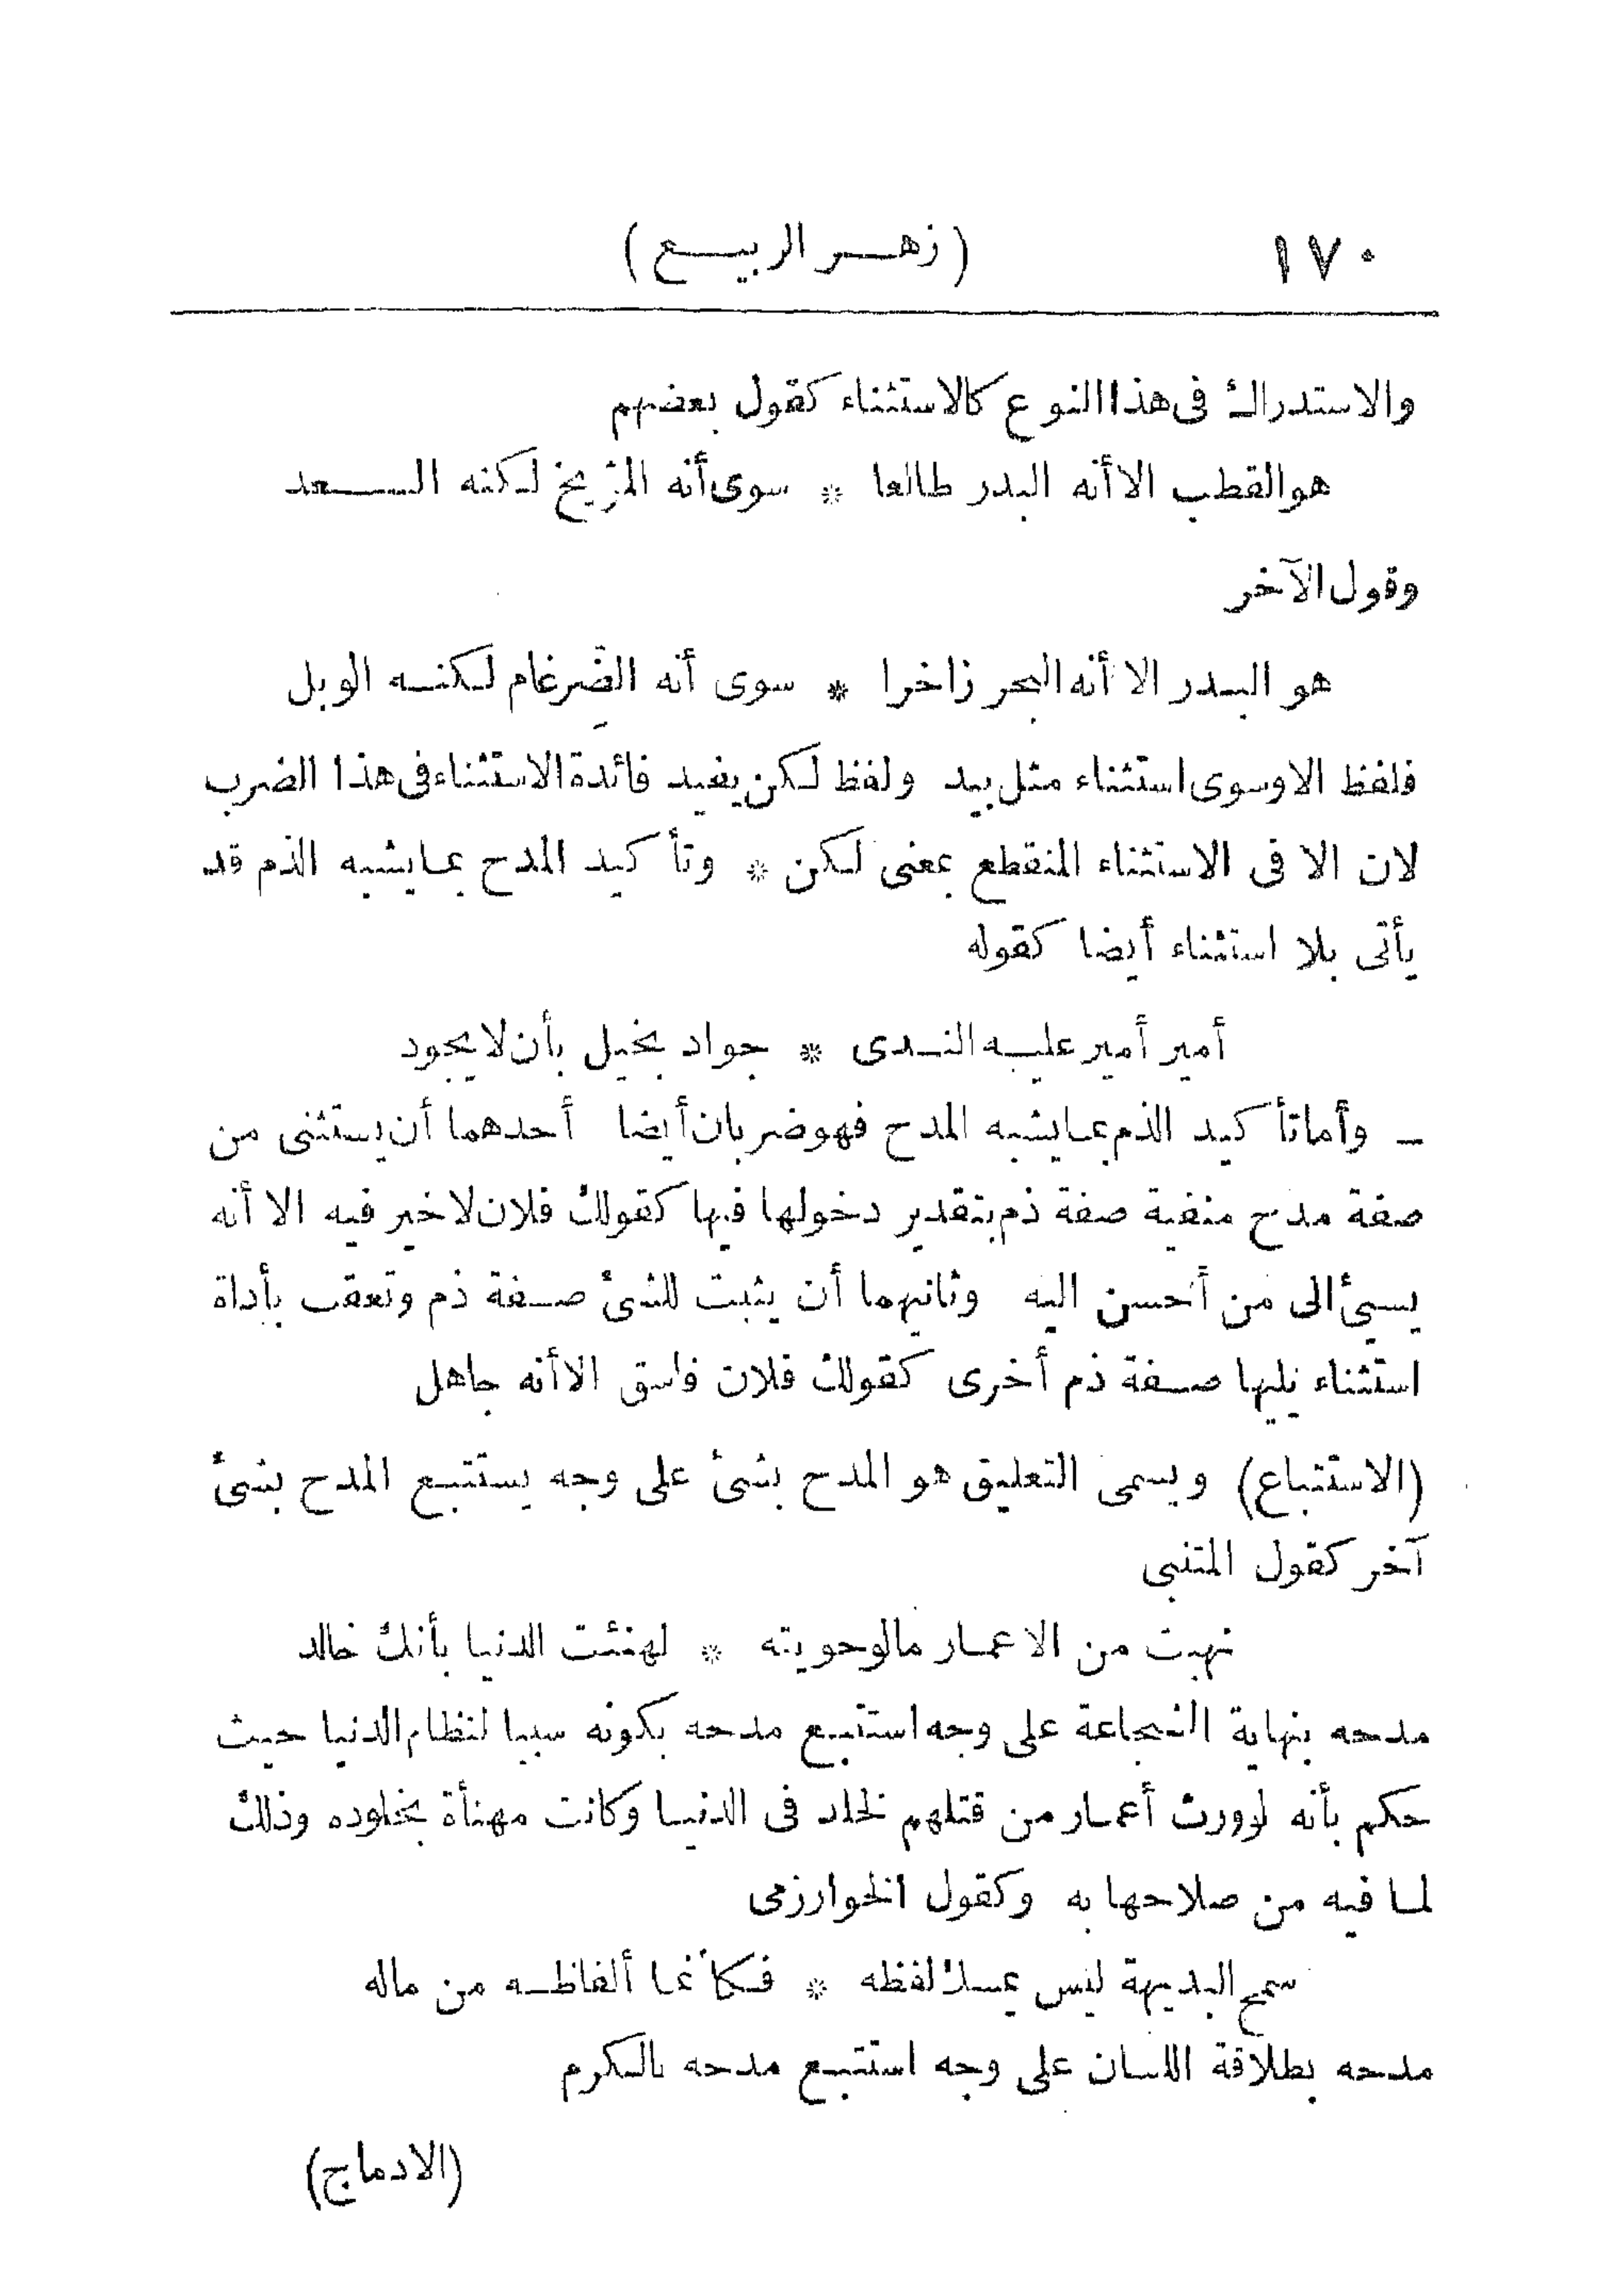 ١٧٠ (زهر الربيع)
والاستدراك فى هذا النوع كالاستثناء كقول بعضهم
هو القطب الا أنه البدر طالعا * سوى أنه المرّيخ لكنه السعد
وقول الآخر
هو البدر الا أنه البحر زاخرا * سوى أنه الضِّرغام لكنه الوبل
فلفظ الا وسوى استثناء مثل بيد ولفظ لكن يفيد فائدة الاستثناء فى هذا الضرب
لان الا فى الاستثناء المنقطع بمعنى لكن * وتأكيد المدح بما يشبه الذم قد
يأتى بلا استثناء أيضا كقوله
أمير أمير عليه الندى * جواد بخيل بأن لا يجود
ـ وأما تأكيد الذم بما يشبه المدح فهو ضربان أيضا أحدهما أن يستثنى من
صفة مدح منفية صفة ذم بتقدير دخولها فيها كقولك فلان لا خير فيه الا أنه
يسىء الى من أحسن اليه وثانيهما أن يثبت للشئ صفة ذم وتعقب بأداة
استثناء يليها صفة ذم أخرى كقولك فلان فاسق الا أنه جاهل
(الاستتباع) ويسمى التعليق هو المدح بشئ على وجه يستتبع المدح بشئ
آخر كقول المتنبى
نهبت من الاعمار مالو حويته * لهنئت الدنيا بأنك خالد
مدحه بنهاية الشجاعة على وجه استتبع مدحه بكونه سببا لنظام الدنيا حيث
حكم بأنه لو ورث أعمار من قتلهم لخلد فى الدنيا وكانت مهنأة بخلوده وذلك
لما فيه من صلاحها به وكقول الخوارزمى
سمح البديهة ليس يمسك لفظه * فكأنما ألفاظه من ماله
مدحه بطلاقة اللسان على وجه استتبع مدحه بالكرم
(الادماج)